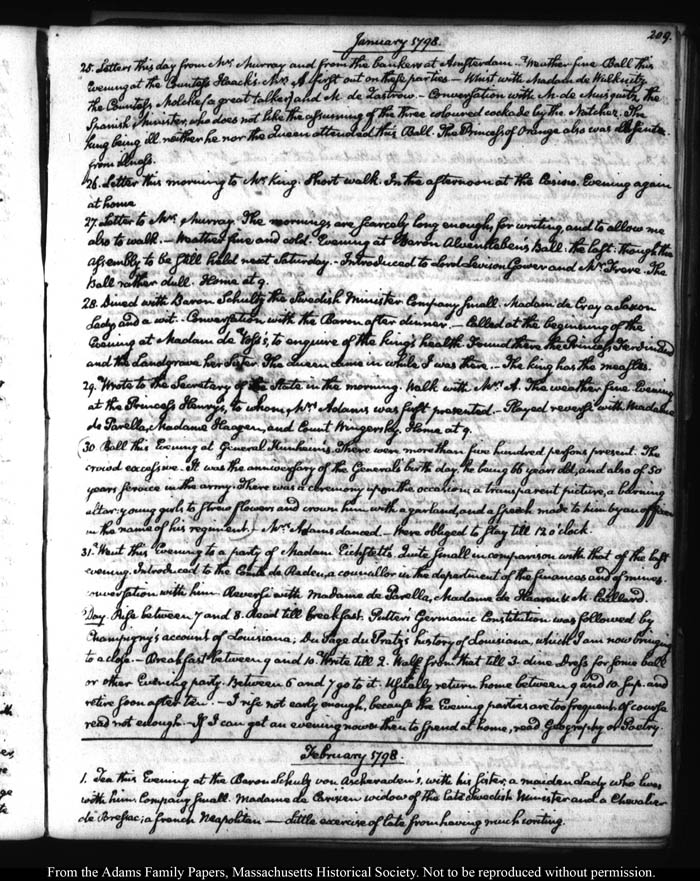 209.
January 1798.
25. Letters this day from Mr. Murray and from the bankers at Amsterdam. Weather fine Ball this
Evening at the Countess Haack's. Mrs. A first out on these parties — Whist with Madam de
the Countess Molcke (a great talker) and M. de Zastrow. — Conversation with M. de Musquitz the
Spanish Minister, who does not like the assuming of the three coloured cockade by the Natches. The
King being ill neither he nor the Queen attended this Ball. The Princess of Orange also was absente
from illness.
26. Letter this morning to Mr. King. Short walk. In the afternoon at the Casino. Evening again
at home
27. Letter to Mr. Murray. The mornings are scarcely long enough for writing, and to allow me
also to walk. — Weather fine and cold. Evening at Baron Alvensleben's Ball. the last: though the
assembly to be still held next Saturday. — Introduced to Lord Levison Gower and Mr. Frere. The
Ball rather dull. Home at 9.
28. Dined with Baron Schultz the Swedish Minister Company small. Madam de Cray a Saxon
Lady and a wit. Conversation with the Baron after dinner. — Called at the beginning of the
Evening at Madam de Voss's, to enquire of the King's health. Found there the Princess Ferdinand
and the Landgrave her Sister. The Queen came in while I was there. — The King has the measles.
29. Wrote to the Secretary of the State in the morning. Walk with Mrs. A. The weather fine. Evening
at the Princess Henry's, to whom Mrs. Adams was first presented. — Played reversé with Madame
de Parella, Madame Haagen, and Count Wingersky. Home at 9.
(30 Ball this Evening at General Kunheim's. There were more than five hundred persons present. The
crowd excessive. It was the anniversary of the General's birth day. he being 66 years old, and also of 50
years service in the army. There was a ceremony upon the occasion, a transparent picture, a burning
altar: young girls to strew flowers and crown him with a garland, and a speech made to him by an officer
in the name of his regiment.) Mrs. Adams danced. — Were obliged to stay till 12 o'clock.
31. Went this Evening to a party of Madam Eichstett's. Quite small in comparison with that of the last
evening. Introduced to the Comte de Reden, a councillor in the department of the finances and of mines.
conversation with him. Reversé with Madame de Parella, Madame de Haaren & M. Caillard.
Day. Rise between 7 and 8. Read till breakfast. Putter's Germanic Constitution was followed by
Champigny's account of Louisiana; Du Page du Pratz's history of Louisiana, which I am now bringing
to a close. — Breakfast between 9 and 10. Write till 2. Walk from that till 3. dine. Dress for some ball
or other Evening party. Between 6 and 7 go to it. Usually return home between 9 and 10. sup. and
retire soon after ten. — I rise not early enough, because the Evening parties are too frequent, of course
read not enough — If I can get an evening now & then to spend at home, read Geography or Poetry.
February 1798.
1. Tea this Evening at the Baron Schulz von Ascheraden's, with his sister, a maiden Lady who lives
with him. Company small. Madame de Carisien widow of the late Swedish Minister and a Chevalier
de Bressac; a french Neapolitan — Little exercise of late from having much writing.
From the Adams Family Papers, Massachusetts Historical Society. Not to be reproduced without permission.